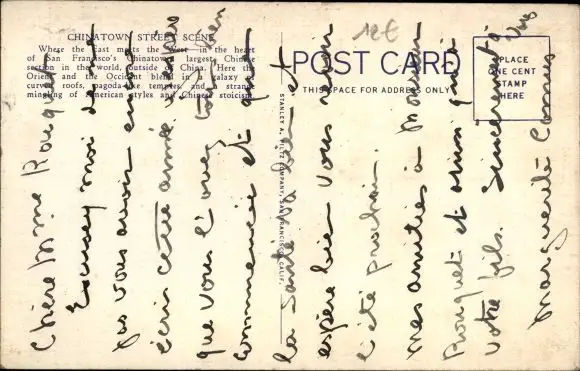 CHINATOWN STREET SCENE
Where the east meets the West—in the heart
of San Francisco's Chinatown, largest Chinese
section in the world, outside of China. Here the
Orient and the Occident blend in a galaxy of
curved roofs, pagoda-like temples, and a strange
mingling of American styles and Chinese stoicism.
12€
POST CARD
THIS SPACE FOR ADDRESS ONLY
PLACE
ONE CENT
STAMP
HERE
STANLEY A. PILTZ COMPANY, SAN FRANCISCO, CALIF.
Chère Mme Rouquet
Excusez moi de ne
pas vous avoir encore
écris cette année.
que vous l'avez bien
commencée et que
la santé va bien et
espère bien vous revoir
l'été prochain.
mes amitiés à Monsieur
Rouquet et ainsi qu'à
votre fils. Sincèrement à
vous
Marguerite